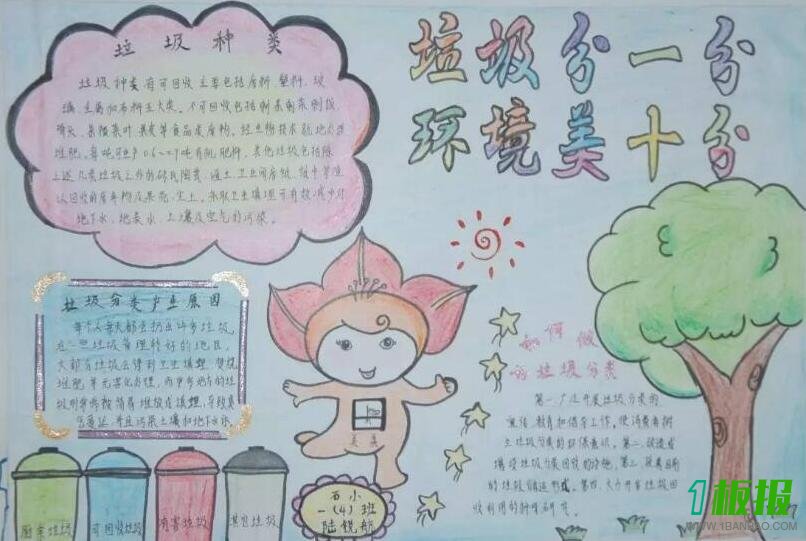 垃圾分一分
环境美十分
垃圾种类
垃圾种类有可回收主要包括废料、塑料、玻
璃、金属和布料五大类。不可回收包括剩菜剩饭
骨头、菜根菜叶、果皮等食品类废物。经生物技术就地处理
堆肥。每吨可生产0.6~0.7吨有机肥料。其他垃圾包括除
上述几类垃圾之外的砖瓦陶瓷、渣土、卫生间废纸、纸巾等难
以回收的废弃物及果壳、尘土。采取卫生填埋可有效减少对
地下水、地表水、土壤及空气的污染。
垃圾分类产生原因
每个人每天都会扔出许多垃圾
在一些垃圾管理较好的地区，
大部分垃圾会得到卫生填埋、焚烧
堆肥等无害化处理，而更多地方的垃
圾则常常被简易堆放或填埋，导致臭
气蔓延，并且污染土壤和地下水体
如何做
好垃圾分类
第一、广泛开展垃圾分类的
宣传、教育和倡导工作，使消费者树
立垃圾分类的环保意识，第二、改造或
增设垃圾分类回收的设施。第三、改善目前
的垃圾储运形式。第四、大力开展垃圾回
收利用的科学研究。
美美
石小
一（4）班
陆锐航
厨余垃圾
可回收垃圾
有害垃圾
其它垃圾
1板报
WWW.1BANBAO.COM